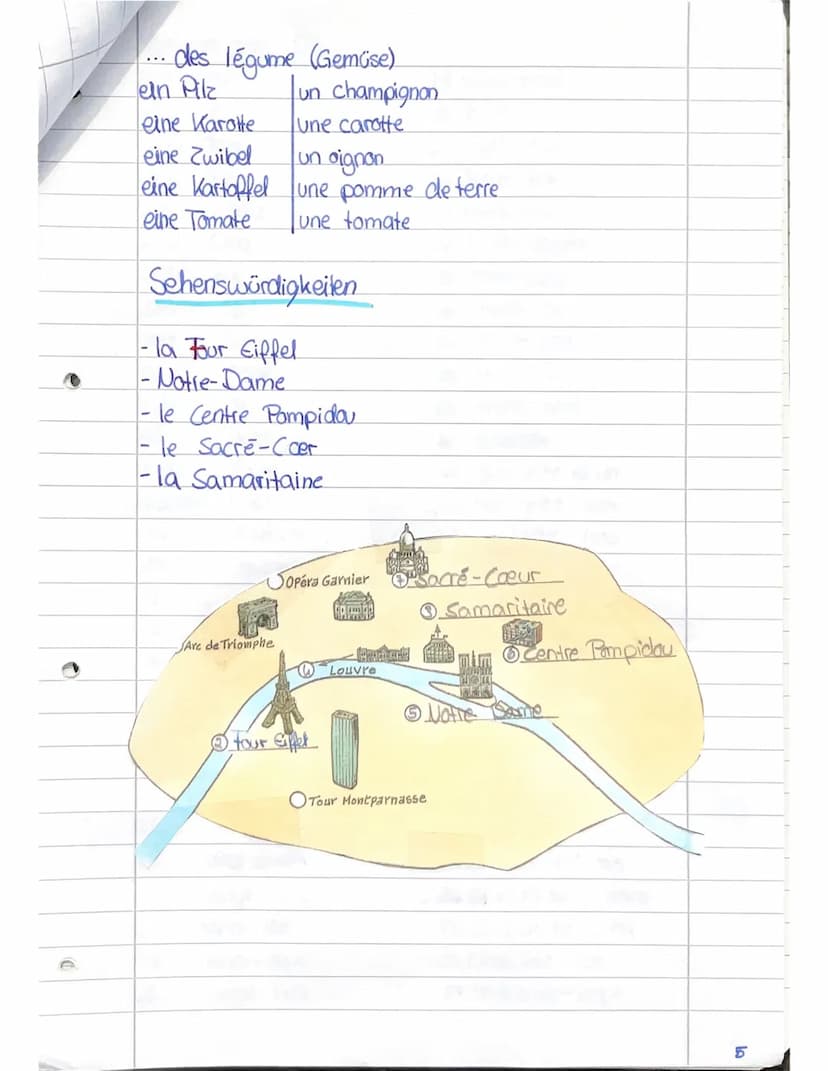 ... des légume (Gemüse)
ein Pilz un champignon
eine Karotte une carotte
eine Zwibel un oignon
eine Kartoffel une pomme de terre
eine Tomate une tomate
Sehenswürdigkeiten
- la Tour Eiffel
- Notre-Dame
- le Centre Pompidou
- le Sacré-Cœr
- la Samaritaine
Opéra Garnier
7 Sacré-Cœur
8 Samaritaine
Arc de Triomphe
6 Centre Pompidou
Louvre
5 Notre Dame
2 tour Eiffel
Tour Montparnasse
5